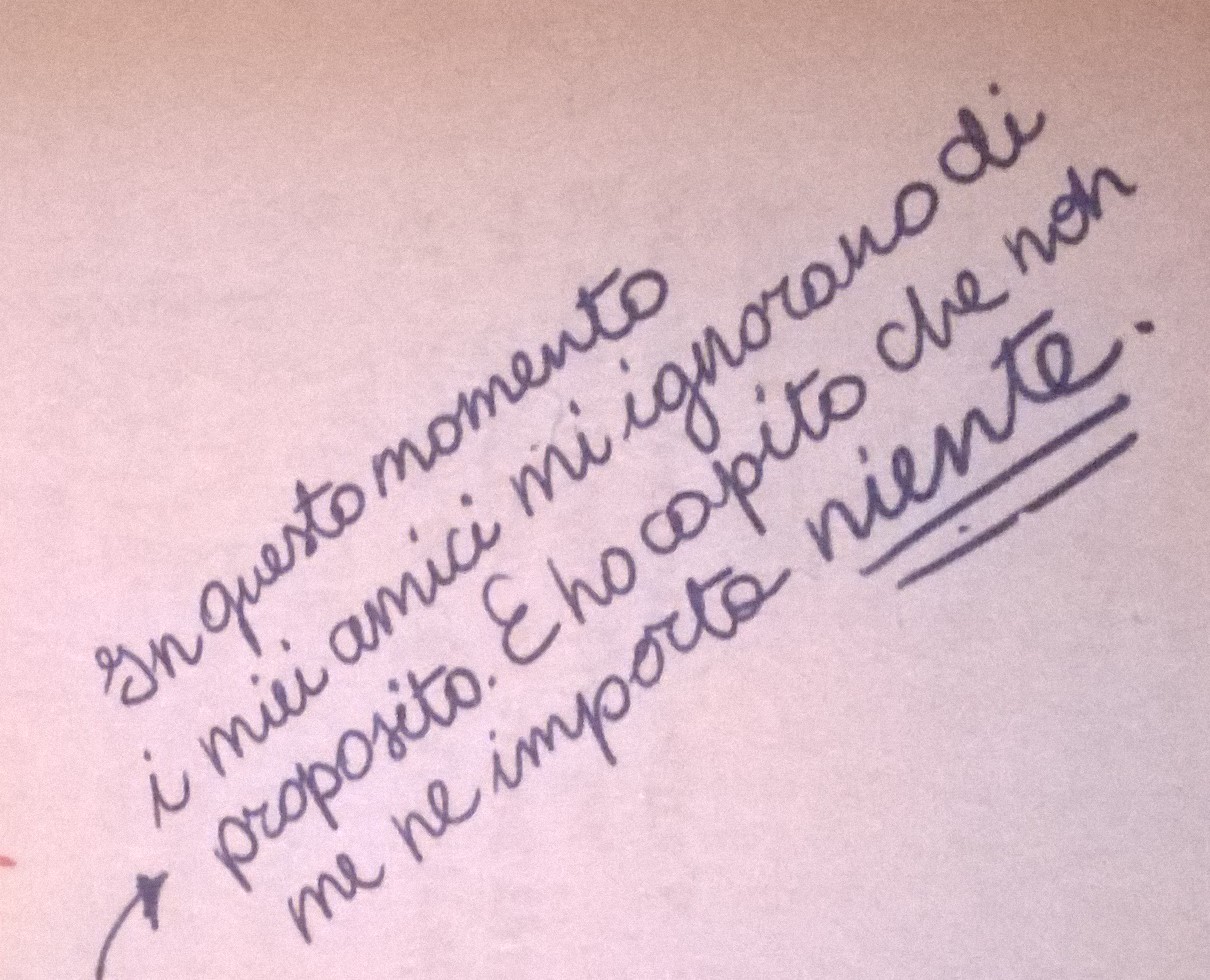 In questo momento
i miei amici mi ignorano di
proposito. E ho capito che non
me ne importa niente.